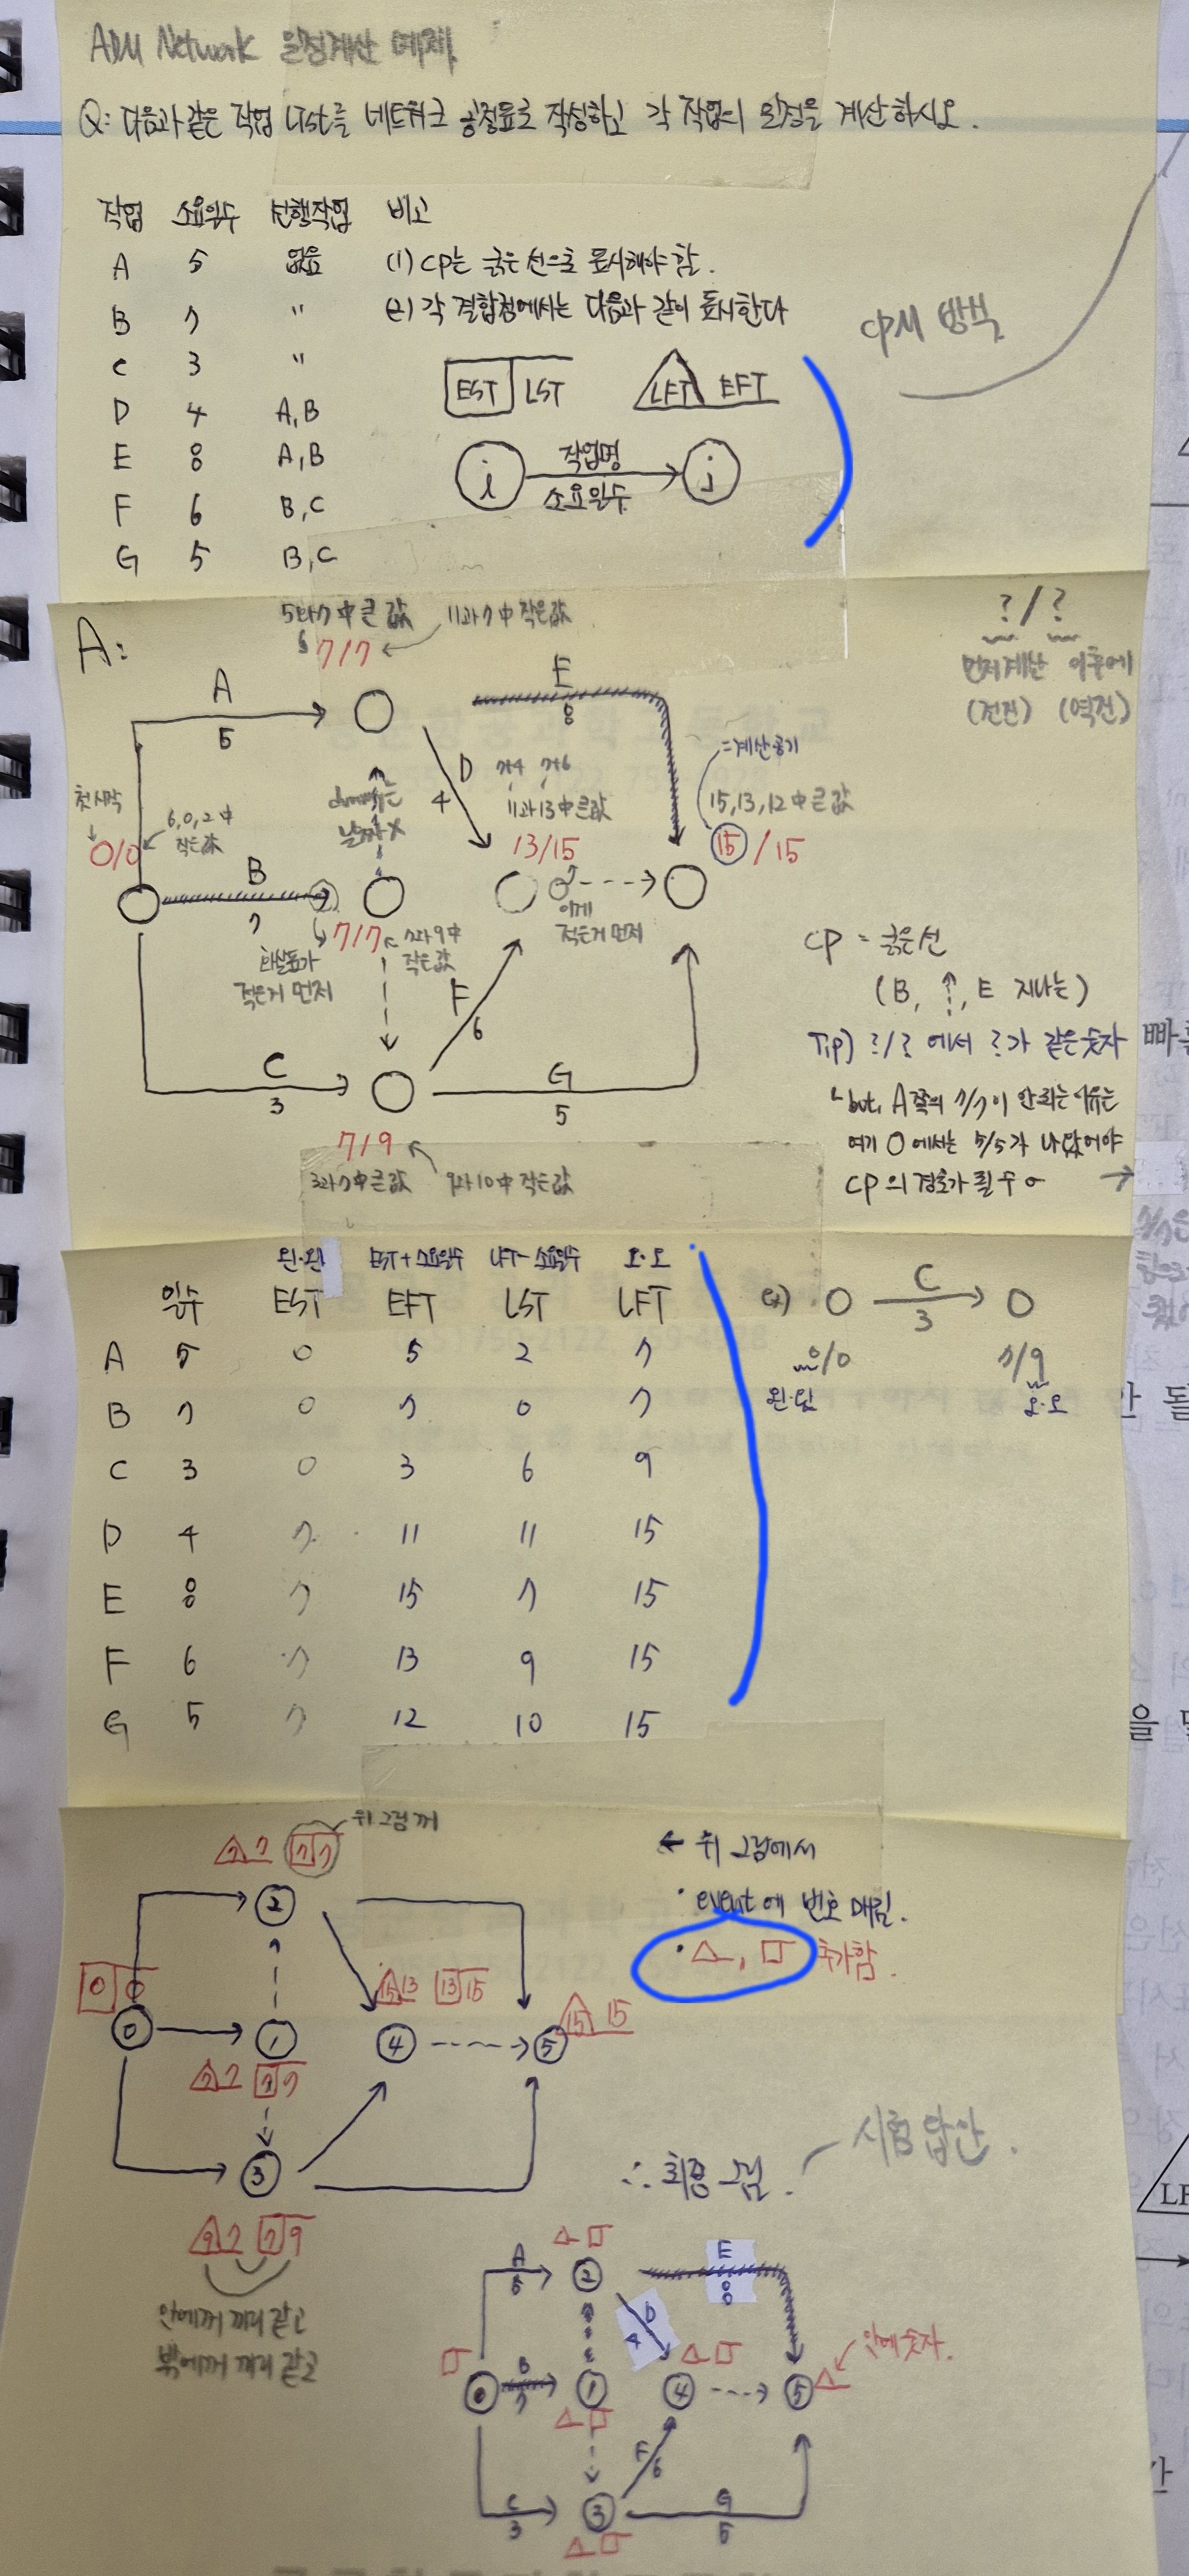 ADM Network 일정계산 예제
Q: 다음과 같은 작업 List를 네트워크 공정표로 작성하고 각 작업의 일정을 계산하시오.
작업 소요일수 선행작업 비고
A 5 없음 (1) CP는 굵은선으로 표시해야 함.
B 7 " (2) 각 결합점에서는 다음과 같이 표시한다
C 3 "
D 4 A,B
E 8 A,B
F 6 B,C
G 5 B,C
EST LST LFT EFT
i 작업명 j
소요일수
CPM 방식
A:
5와 7 中 큰 값 11과 7 中 작은값
7/7
? / ?
먼저계산 이후에
(전진) (역진)
A
5
E
8
D
4
7+4 7+6
11과 13中 큰값
=계산공기
15,13,12中 큰값
첫 시작
6,0,2中
작은값
dummy는
날짜 X
0/0
13/15
15 / 15
B
7
이게
적은거 먼저
7/7
7과 9中
작은값
화살표가
적은거 먼저
F
6
C
3
G
5
7/9
3과 7 中 큰 값 9와 10 中 작은값
CP = 굵은선
(B, ⇡, E 지나는)
Tip) ?/? 에서 ?가 같은 숫자
but, A쪽의 7/7이 안되는 이유는
여기 O에서는 5/5가 나왔어야
CP의 경로가 될 수 o
빠
왼·왼 EST+소요일수 LFT-소요일수 오·오
일수 EST EFT LST LFT
A 5 0 5 2 7
B 7 0 7 0 7
C 3 0 3 6 9
D 4 7 11 11 15
E 8 7 15 7 15
F 6 7 13 9 15
G 5 7 12 10 15
ex) C
3
0/0 7/9
왼·왼 오·오
안 될
을
위 그림꺼
7 7 7 7
2
← 위 그림에서
· event에 번호 매김.
· △, □ 추가함.
0 0
15 13 13 15
15 15
0 1 4 5
7 7 7 7
3
9 7 7 9
안에꺼 끼리 같고
밖에꺼 끼리 같고
∴ 최종 그림.
시험 답안.
LF
A
5
2
E
8
D
4
B
7
0 1 4 5
안에 숫자.
F
6
C
3
3
G
5